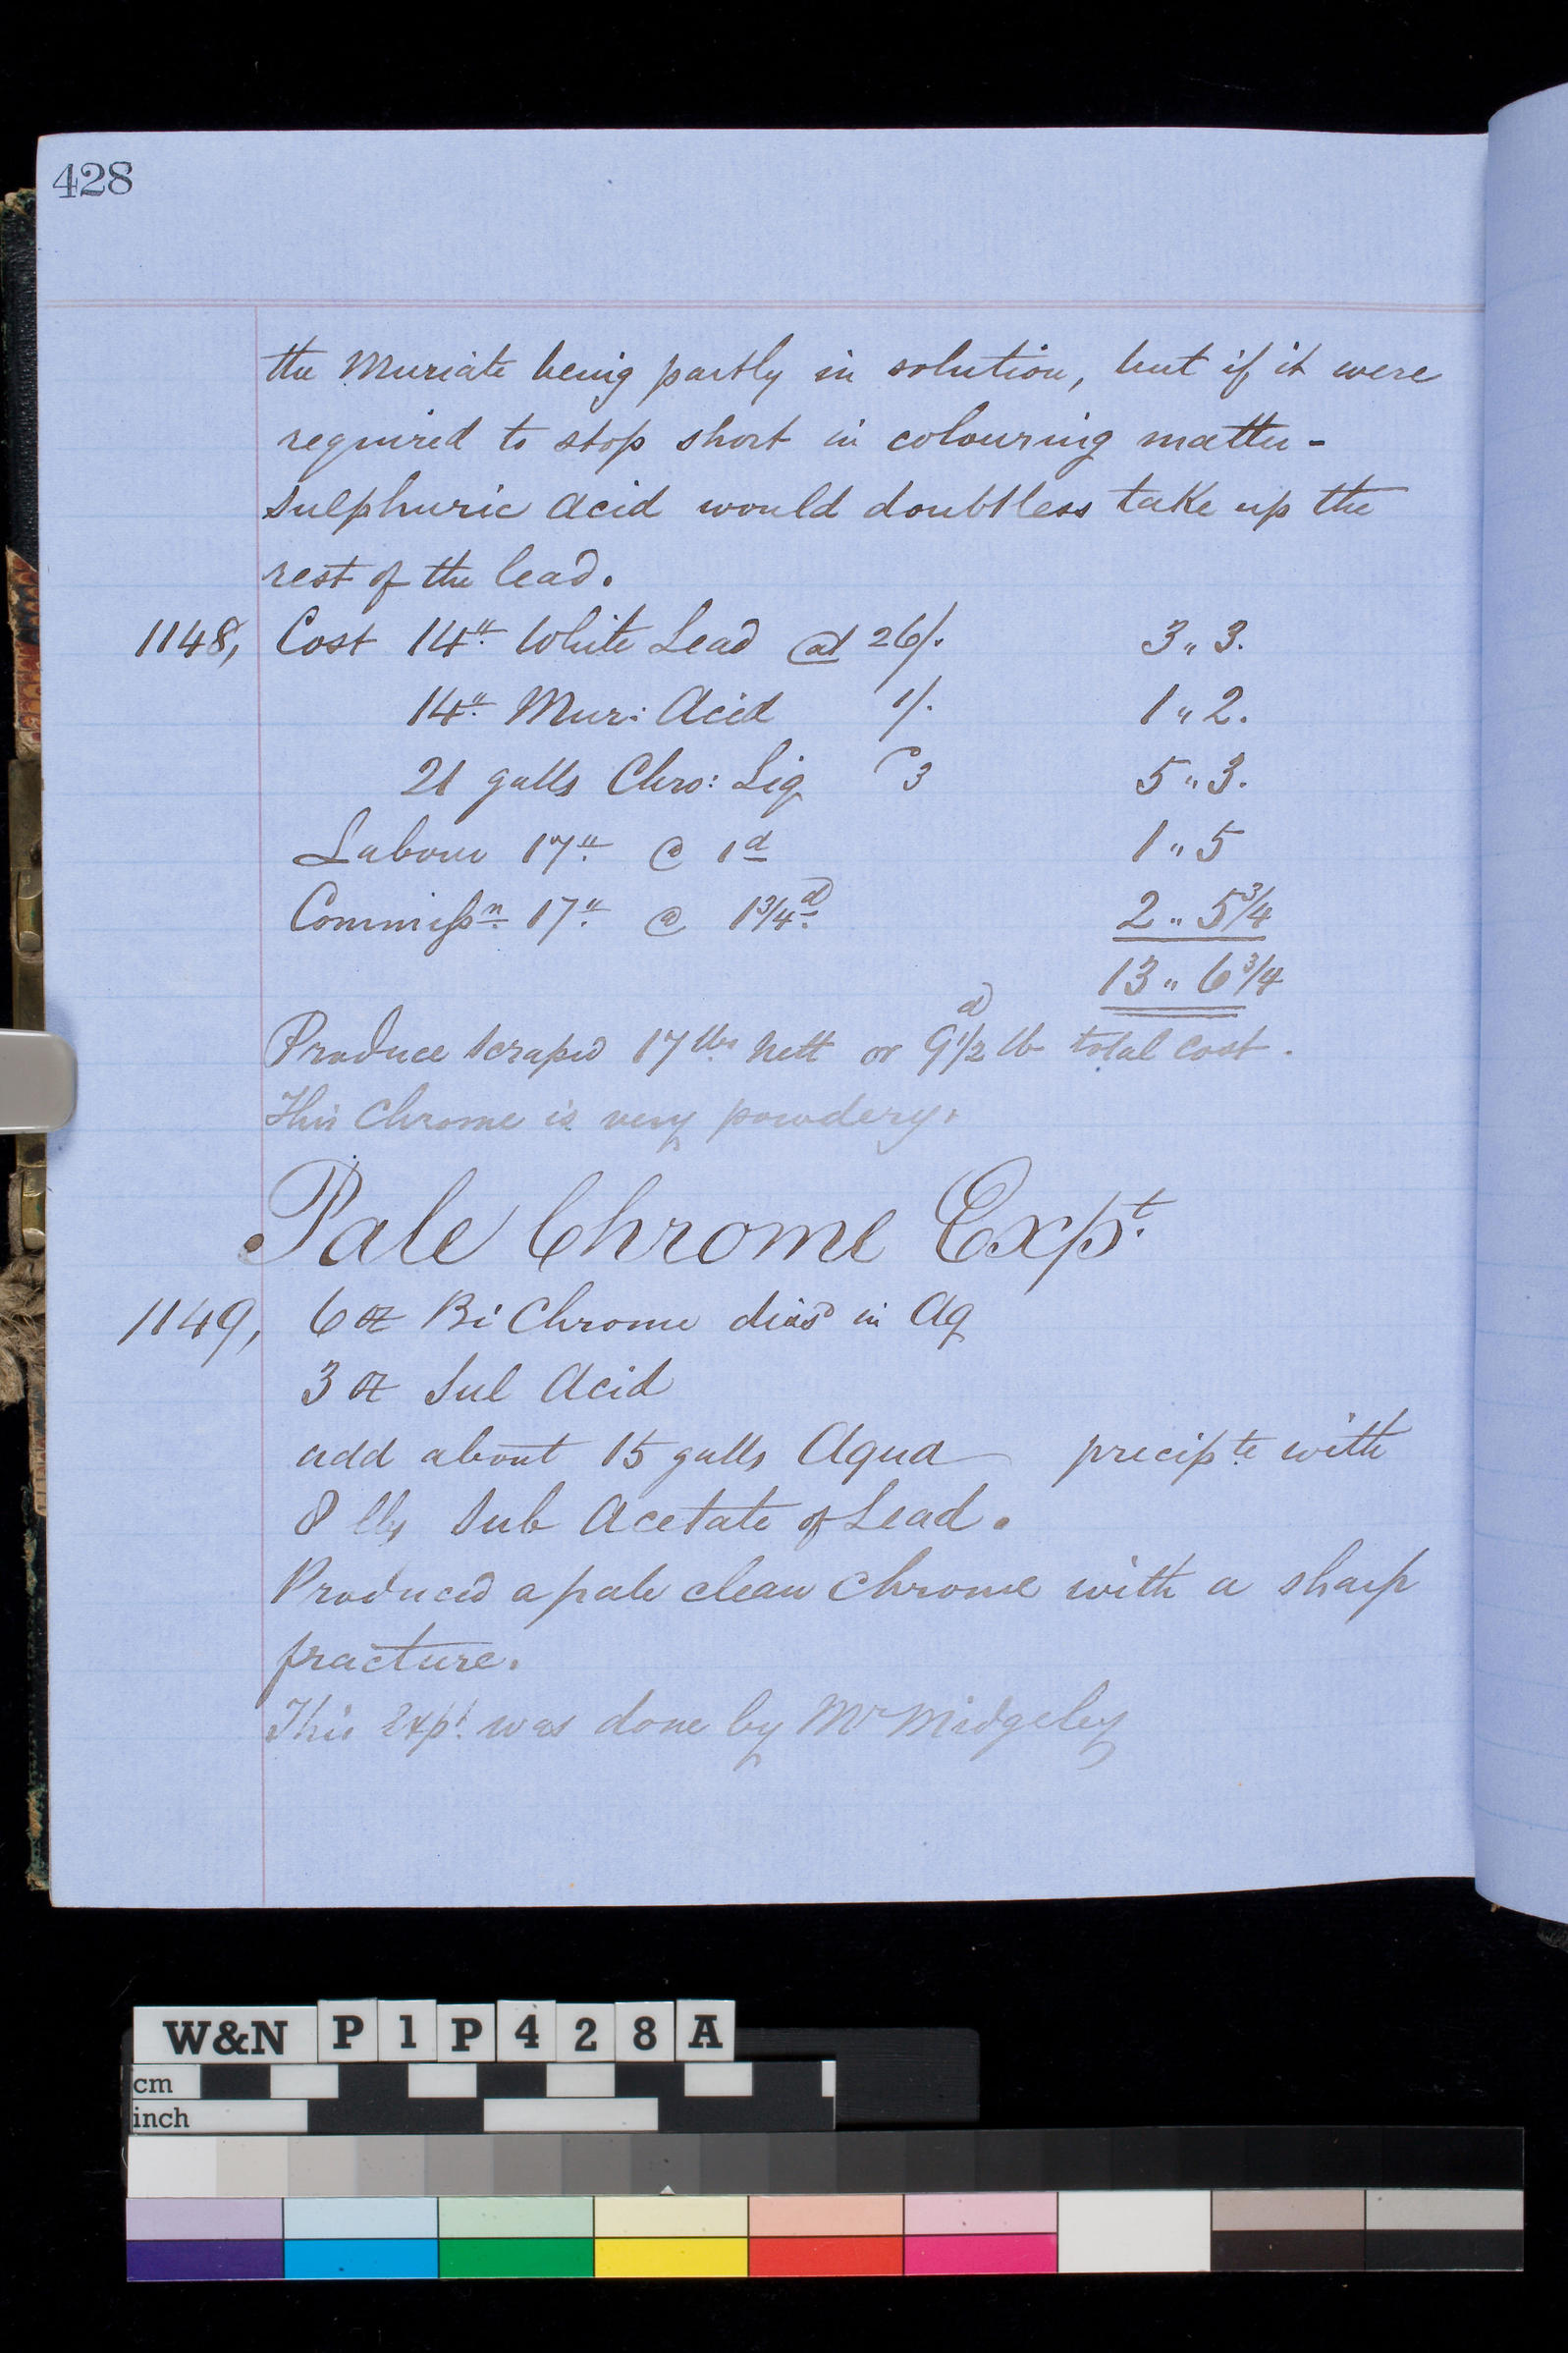 428
the Muriate being partly in solution, but if it were
required to stop short in colouring matter -
sulphuric acid would doubtless take up the
rest of the lead.
1148, Cost 14" White Lead @ 26/. 3" 3.
14" Mur: Acid 1/. 1" 2.
21 galls Chro: Liq 3 5" 3.
Labour 17" @ 1d 1" 5
Commissn 17" @ 1 3/4d 2" 5 3/4
13" 6 3/4
Produce scraped 17 lbs nett or 9 1/2d lb total cost.
This Chrome is very powdery.
Pale Chrome Expt.
1149, 6 oz Bi Chrome disd in Aq
3 oz Sul Acid
add about 15 galls Aqua precipte with
8 lbs Sub Acetate of Lead.
Produced a pale clean Chrome with a sharp
fracture.
This Expt. was done by Mr Midgeley
W&N P1P428A
cm
inch